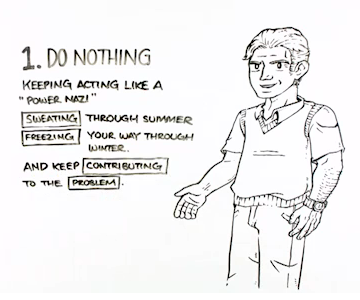 1. DO NOTHING
KEEPING ACTING LIKE A
"POWER NAZI"
SWEATING THROUGH SUMMER
FREEZING YOUR WAY THROUGH
WINTER..
AND KEEP CONTRIBUTING
TO THE PROBLEM.